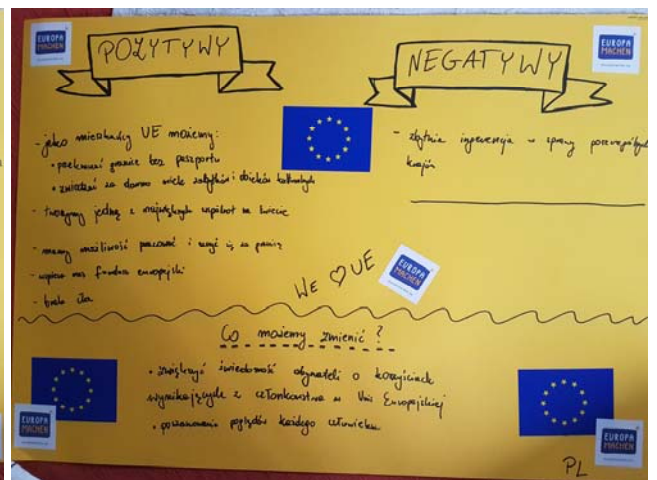 EUROPA
MACHEN
POZYTYWY
NEGATYWY
EUROPA
MACHEN
- jako mieszkańcy UE możemy:
• przekraczać granice bez paszportu
• zwiedzać za darmo wiele zabytków i obiektów kulturalnych
- tworzymy jedną z największych wspólnot na świecie
- mamy możliwość pracować i uczyć się za granicą
- wspiera nas fundusz europejski
- brak cła
- zbytnia ingerencja w sprawy poszczególnych
krajów
WE ♡ UE
EUROPA
MACHEN
Co możemy zmienić?
• zwiększyć świadomość obywateli o korzyściach
wynikających z członkostwa w Unii Europejskiej
• poszanowanie poglądów każdego człowieka
EUROPA
MACHEN
EUROPA
MACHEN
PL